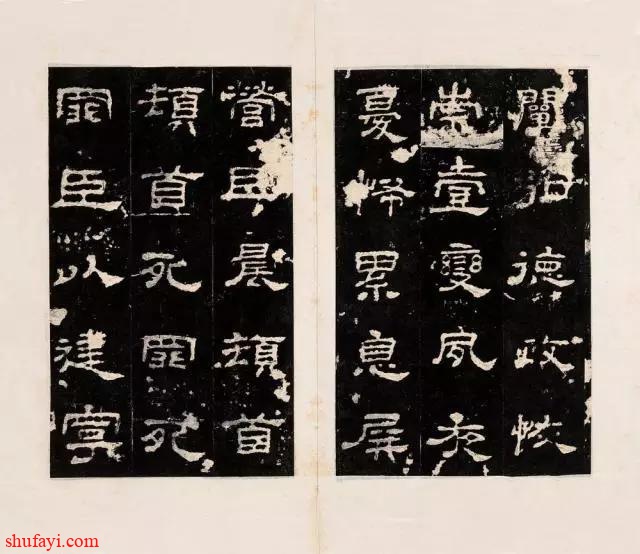 闡弘德政恢
崇壹變夙夜
憂怖累息屏
營臣晨頓首
頓首死罪死
罪臣以建寧
shufayi.com